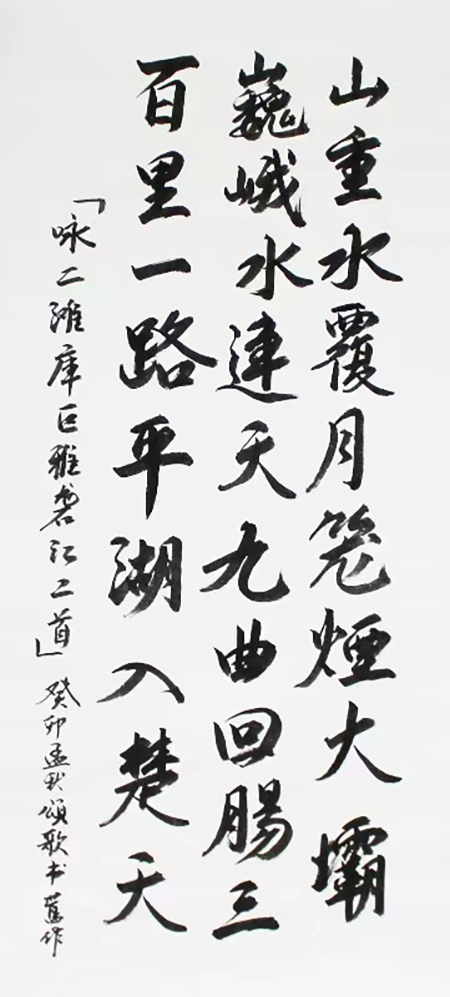 山重水覆月笼煙大壩
巍峨水連天九曲回腸三
百里一路平湖入楚天
「咏二滩庫区雅砻江二首」癸卯孟秋頌歌书舊作